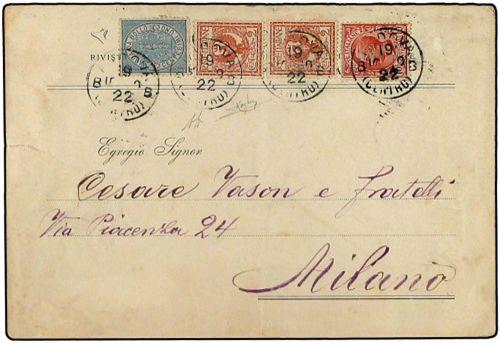 RIVIST
19
22
(CENTRO)
Egregio Signor
Cesare Vason e fratelli
Via Piacenza 24
Milano